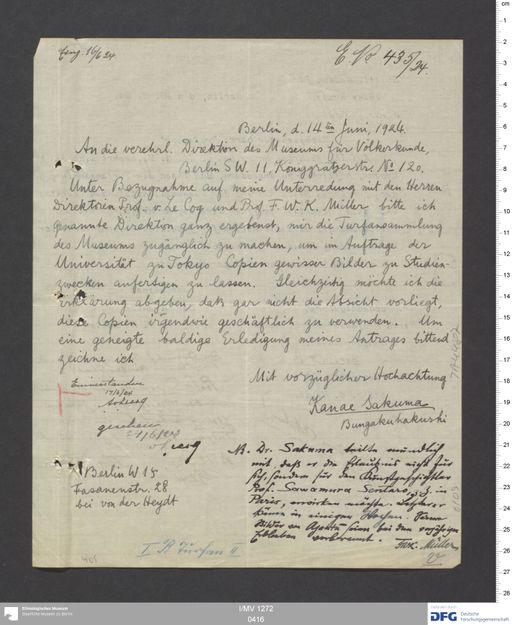 Eing. 16/6 24
E No 435/24.
Berlin, d. 14ten Juni, 1924.
An die verehrl. Direktion des Museums für Völkerkunde,
Berlin S.W. 11, Königgrätzerstr. No 120.
Unter Bezugnahme auf meine Unterredung mit den Herren
Direktoren Prof. v. Le Coq und Prof. F. W. K. Müller bitte ich
genannte Direktion ganz ergebenst, mir die Turfansammlung
des Museums zugänglich zu machen, um im Auftrage der
Universität zu Tokyo Copien gewisser Bilder zu Studien-
zwecken anfertigen zu lassen. Gleichzeitig möchte ich die
Erklärung abgeben, daß gar nicht die Absicht vorliegt,
diese Copien irgendwie geschäftlich zu verwenden. Um
eine geneigte baldige Erledigung meines Antrages bittend
zeichne ich
Mit vorzüglicher Hochachtung
Kanae Sakuma
Bungakuhakushi
Einverstanden
17/6/24
gesehen
Berlin W 15
Fasanenstr. 28
bei von der Heydt
N. Dr. Sakuma teilte mündlich
mit, daß er die Erlaubnis nicht für
sich, sondern für den Kunstgeschichtler
Prof. Sawamura Sentaro, z. Z. in
Paris, erwirken möchte.
in einigen Wochen.
bei dem
Erdbeben verbrannt. Müller
I B Turfan II
405
I/MV 1272
0416
Ethnologisches Museum
Staatliche Museen zu Berlin
gefördert durch
DFG
Deutsche
Forschungsgemeinschaft
cm
1
2
3
4
5
6
7
8
9
10
11
12
13
14
15
16
17
18
19
20
21
22
23
24
25
26
27
28